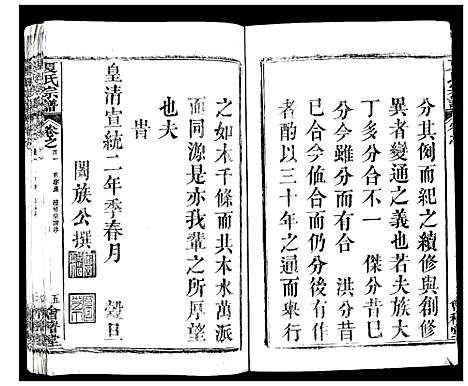 分其例而紀之續修與創修
異者變通之義也若夫族大
丁多分合不一　傑分昔
分今雖分而合　洪分昔
已合今何妨分而仍合
所以三十年之通而舉行
之如木千條而共本水萬派
而同源是亦我輩之所厚望
也夫
旹
皇清宣統二年季春月　穀旦
闔族公撰
夏氏宗譜
卷之
五
會㮣堂